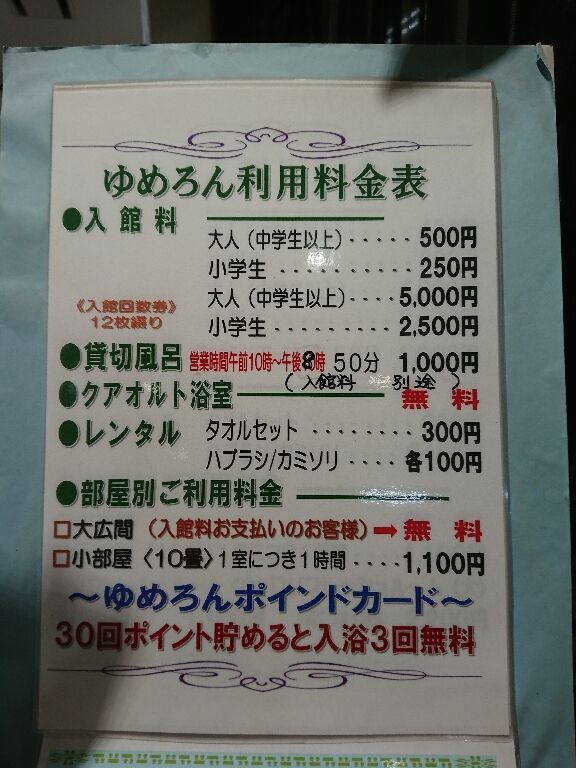 ゆめろん利用料金表
●入館料
大人（中学生以上）･････500円
小学生･････････250円
《入館回数券》
12枚綴り
大人（中学生以上）････5,000円
小学生････････2,500円
●貸切風呂 営業時間午前10時～午後8時 50分 1,000円
（入館料 別途）
●クアオルト浴室 無料
●レンタル タオルセット････････300円
ハブラシ/カミソリ････各100円
●部屋別ご利用料金
□大広間（入館料お支払いのお客様）➡無料
□小部屋〈10畳〉1室につき1時間････1,100円
～ゆめろんポインドカード～
30回ポイント貯めると入浴3回無料